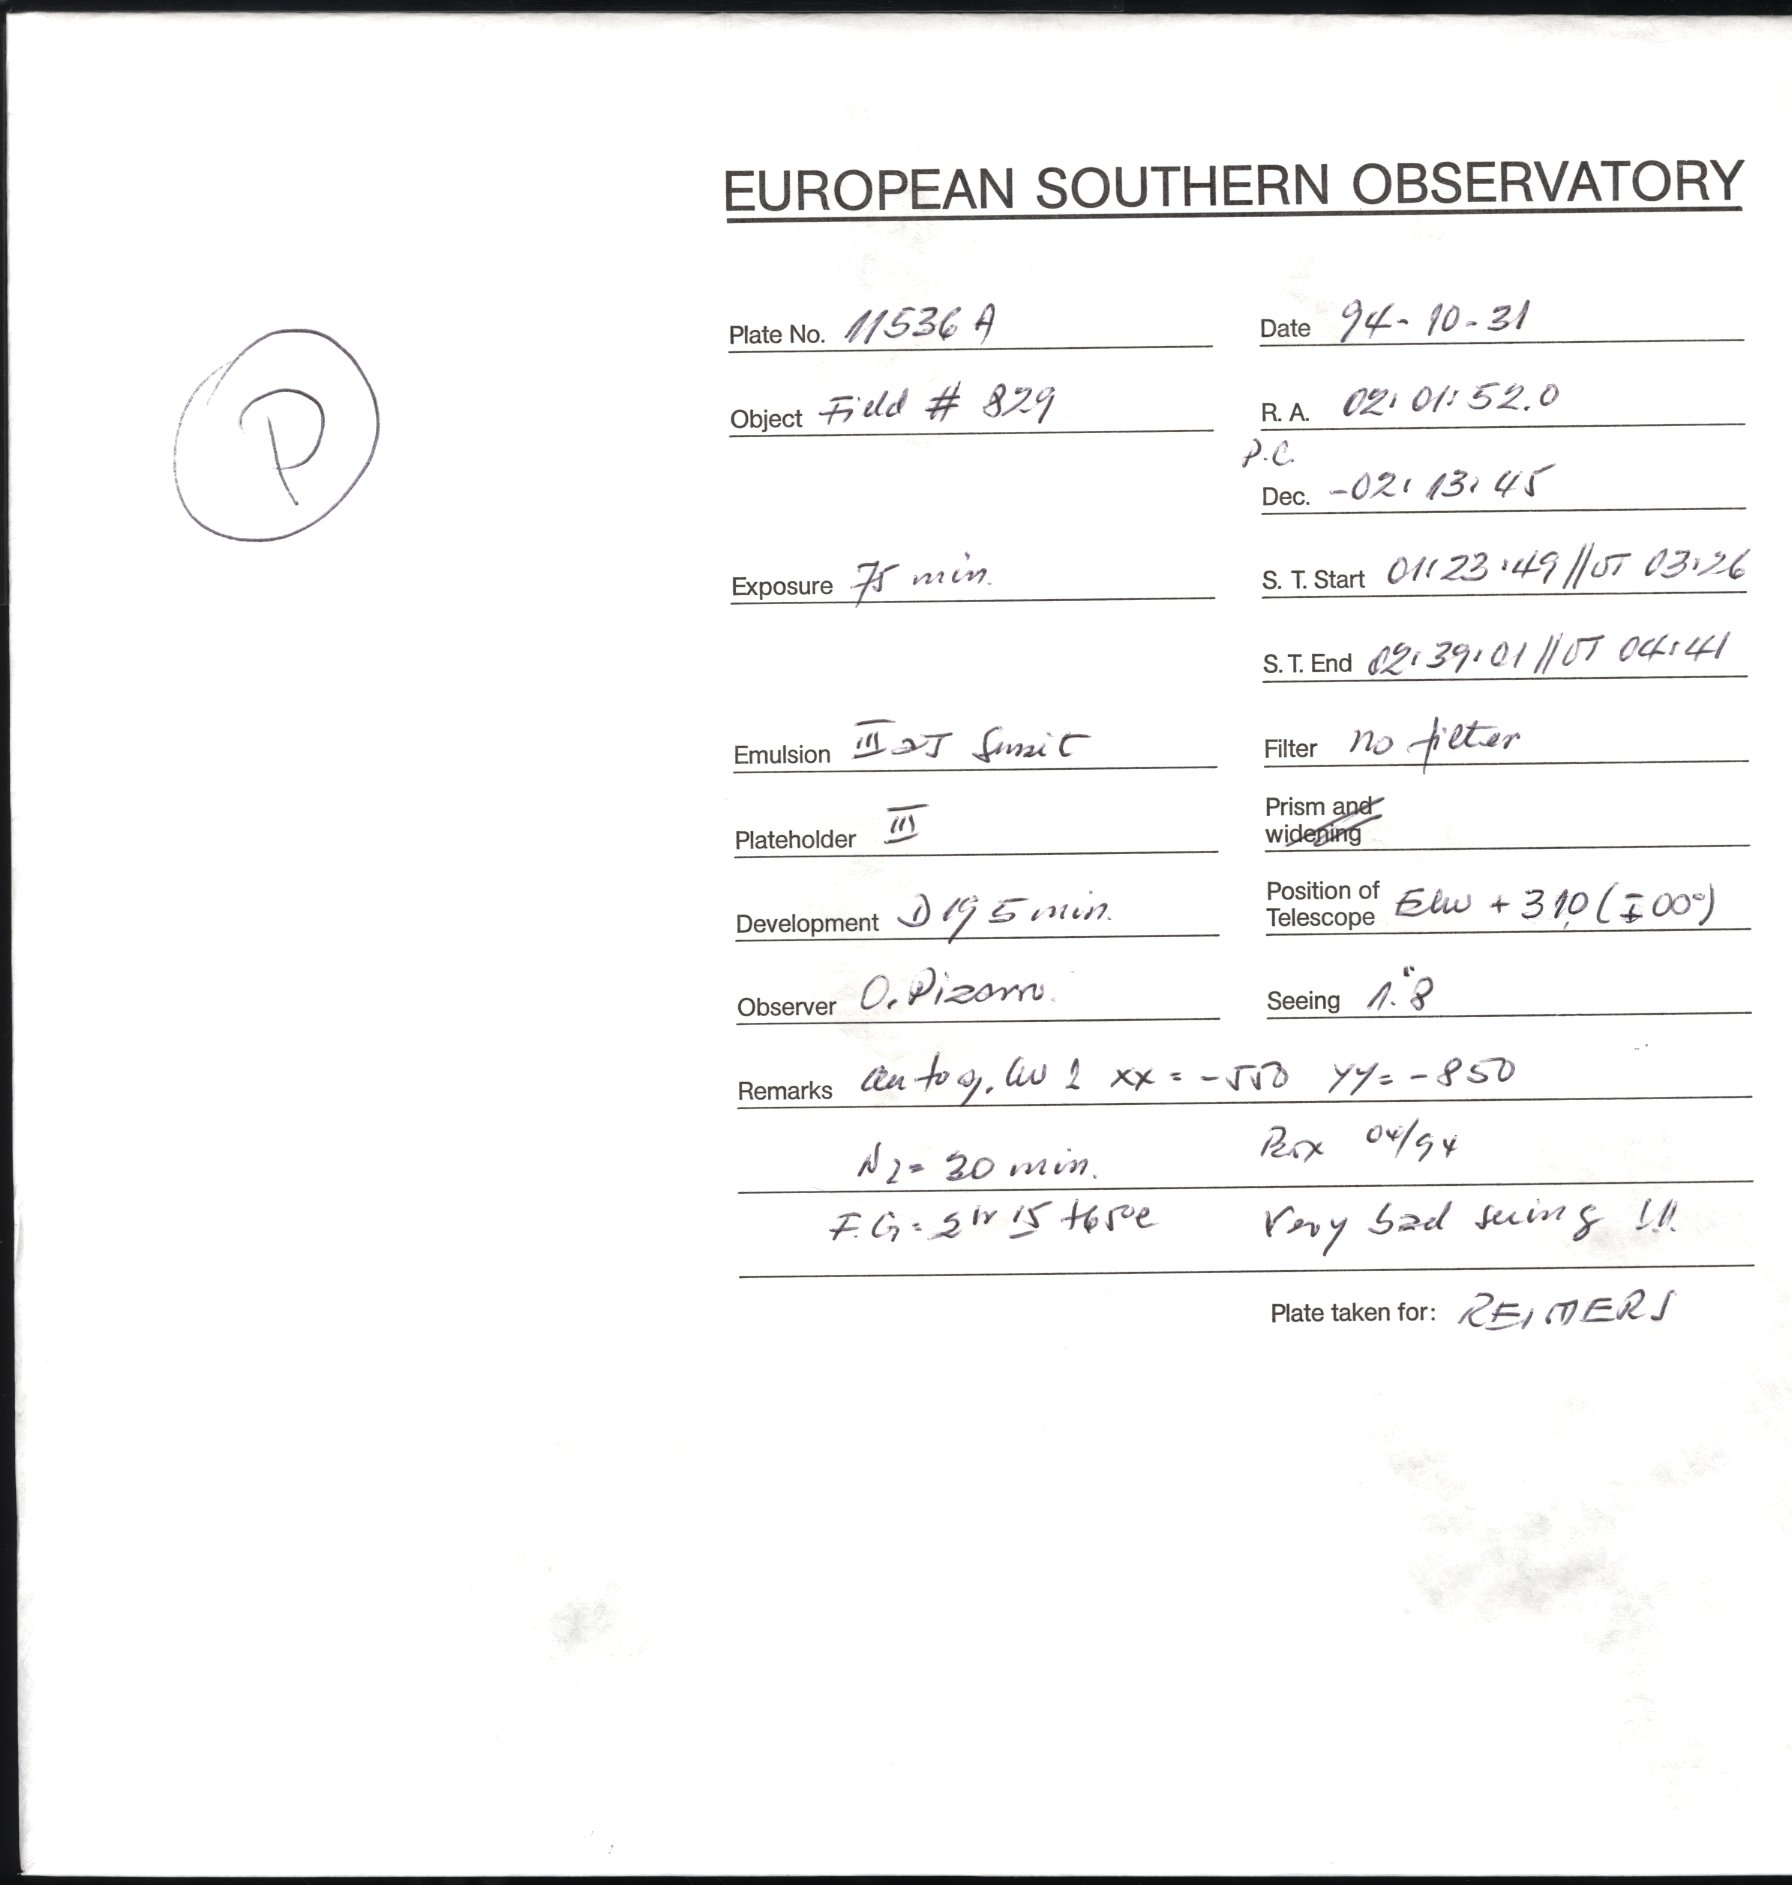 EUROPEAN SOUTHERN OBSERVATORY
Plate No. 11536 A
Date 94-10-31
P
Object Field # 829
R. A. 02:01:52.0
P.C.
Dec. -02:13:45
Exposure 75 min.
S. T. Start 01:23:49 // UT 03:26
S. T. End 02:39:01 // UT 04:41
Emulsion III aJ
Filter no filter
Plateholder III
Prism and
widening
Development D19 5 min.
Position of
Telescope + 310
Observer O. Pizarro.
Seeing 1."8
Remarks autog. XX = -550 YY = -850
N2 = 30 min.
04/94
F.G =
Very bad seeing !!!
Plate taken for: REIMERS